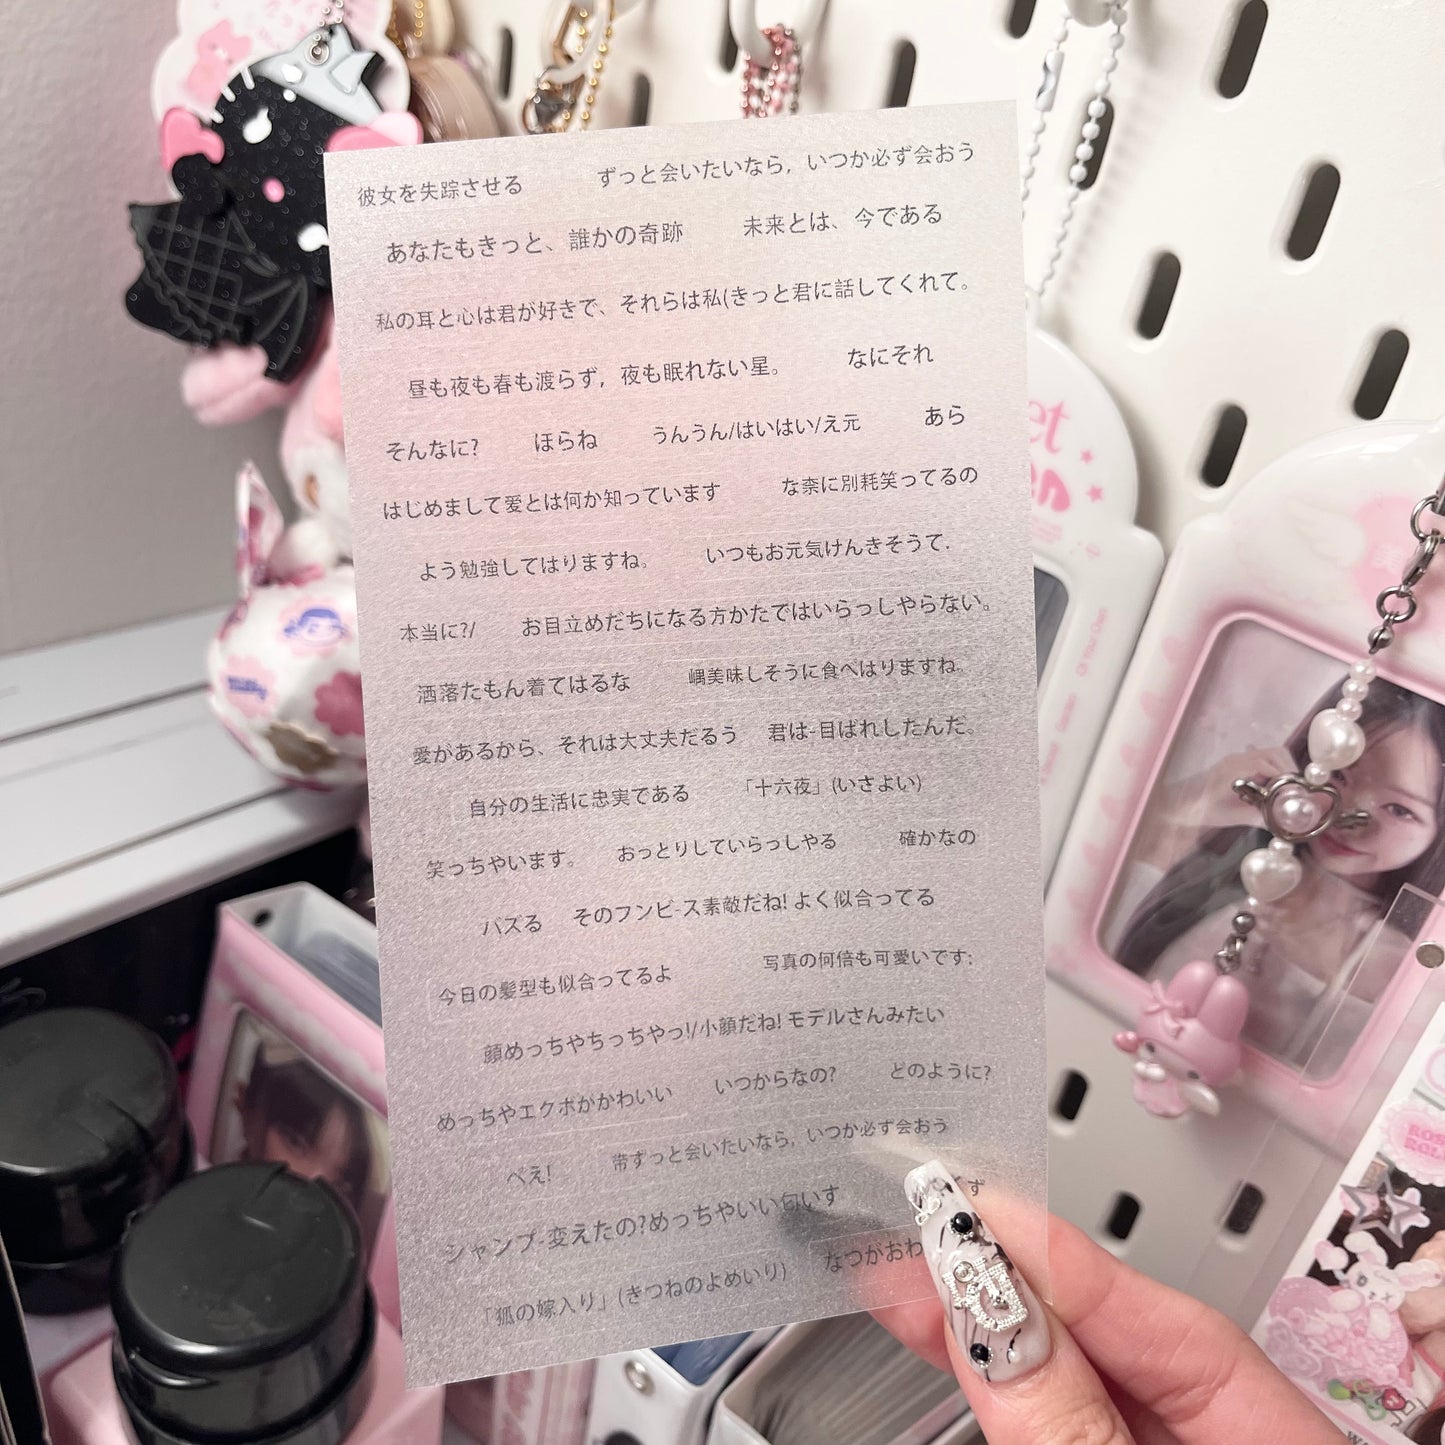 彼女を失踪させる ずっと会いたいなら，いつか必ず会おう
あなたもきっと、誰かの奇跡 未来とは、今である
私の耳と心は君が好きで、それらは私(きっと君に話してくれて。
昼も夜も春も渡らず，夜も眠れない星。 なにそれ
そんなに? ほらね うんうん/はいはい/え元 あら
はじめまして愛とは何か知っています な柰に別耗笑ってるの
よう勉強してはりますね。 いつもお元気けんきそうて.
本当に?/ お目立めだちになる方かたではいらっしやらない。
洒落たもん着てはるな 嵎美味しそうに食べはりますね。
愛があるから、それは大丈夫だるう 君は-目ばれしたんだ。
自分の生活に忠実である 「十六夜」(いさよい)
笑っちやいます。 おっとりしていらっしやる 確かなの
バズる そのフンピ-ス素敵だね! よく似合ってる
今日の髪型も似合ってるよ 写真の何倍も可愛いです;
顔めっちやちっちやっ!/小顔だね! モデルさんみたい
めっちやエクボがかわいい いつからなの? どのように?
べえ! 帯ずっと会いたいなら，いつか必ず会おう
シャンプ-変えたの?めっちやいい匂いす くず
「狐の嫁入り」(きつねのよめいり) なつがおわ